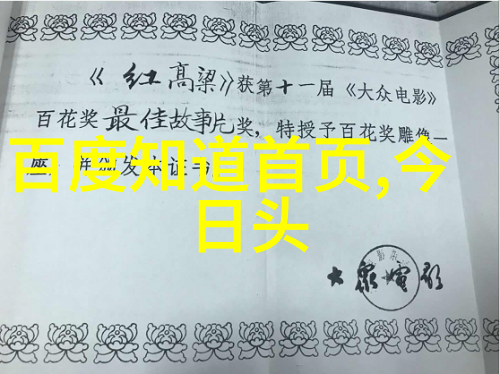 《红高粱》获第十一届《大众电影》
百花奖最佳故事片奖，特授予百花奖雕像一
座，并颁发本证书
百度知道首页,今
日头
大众电影